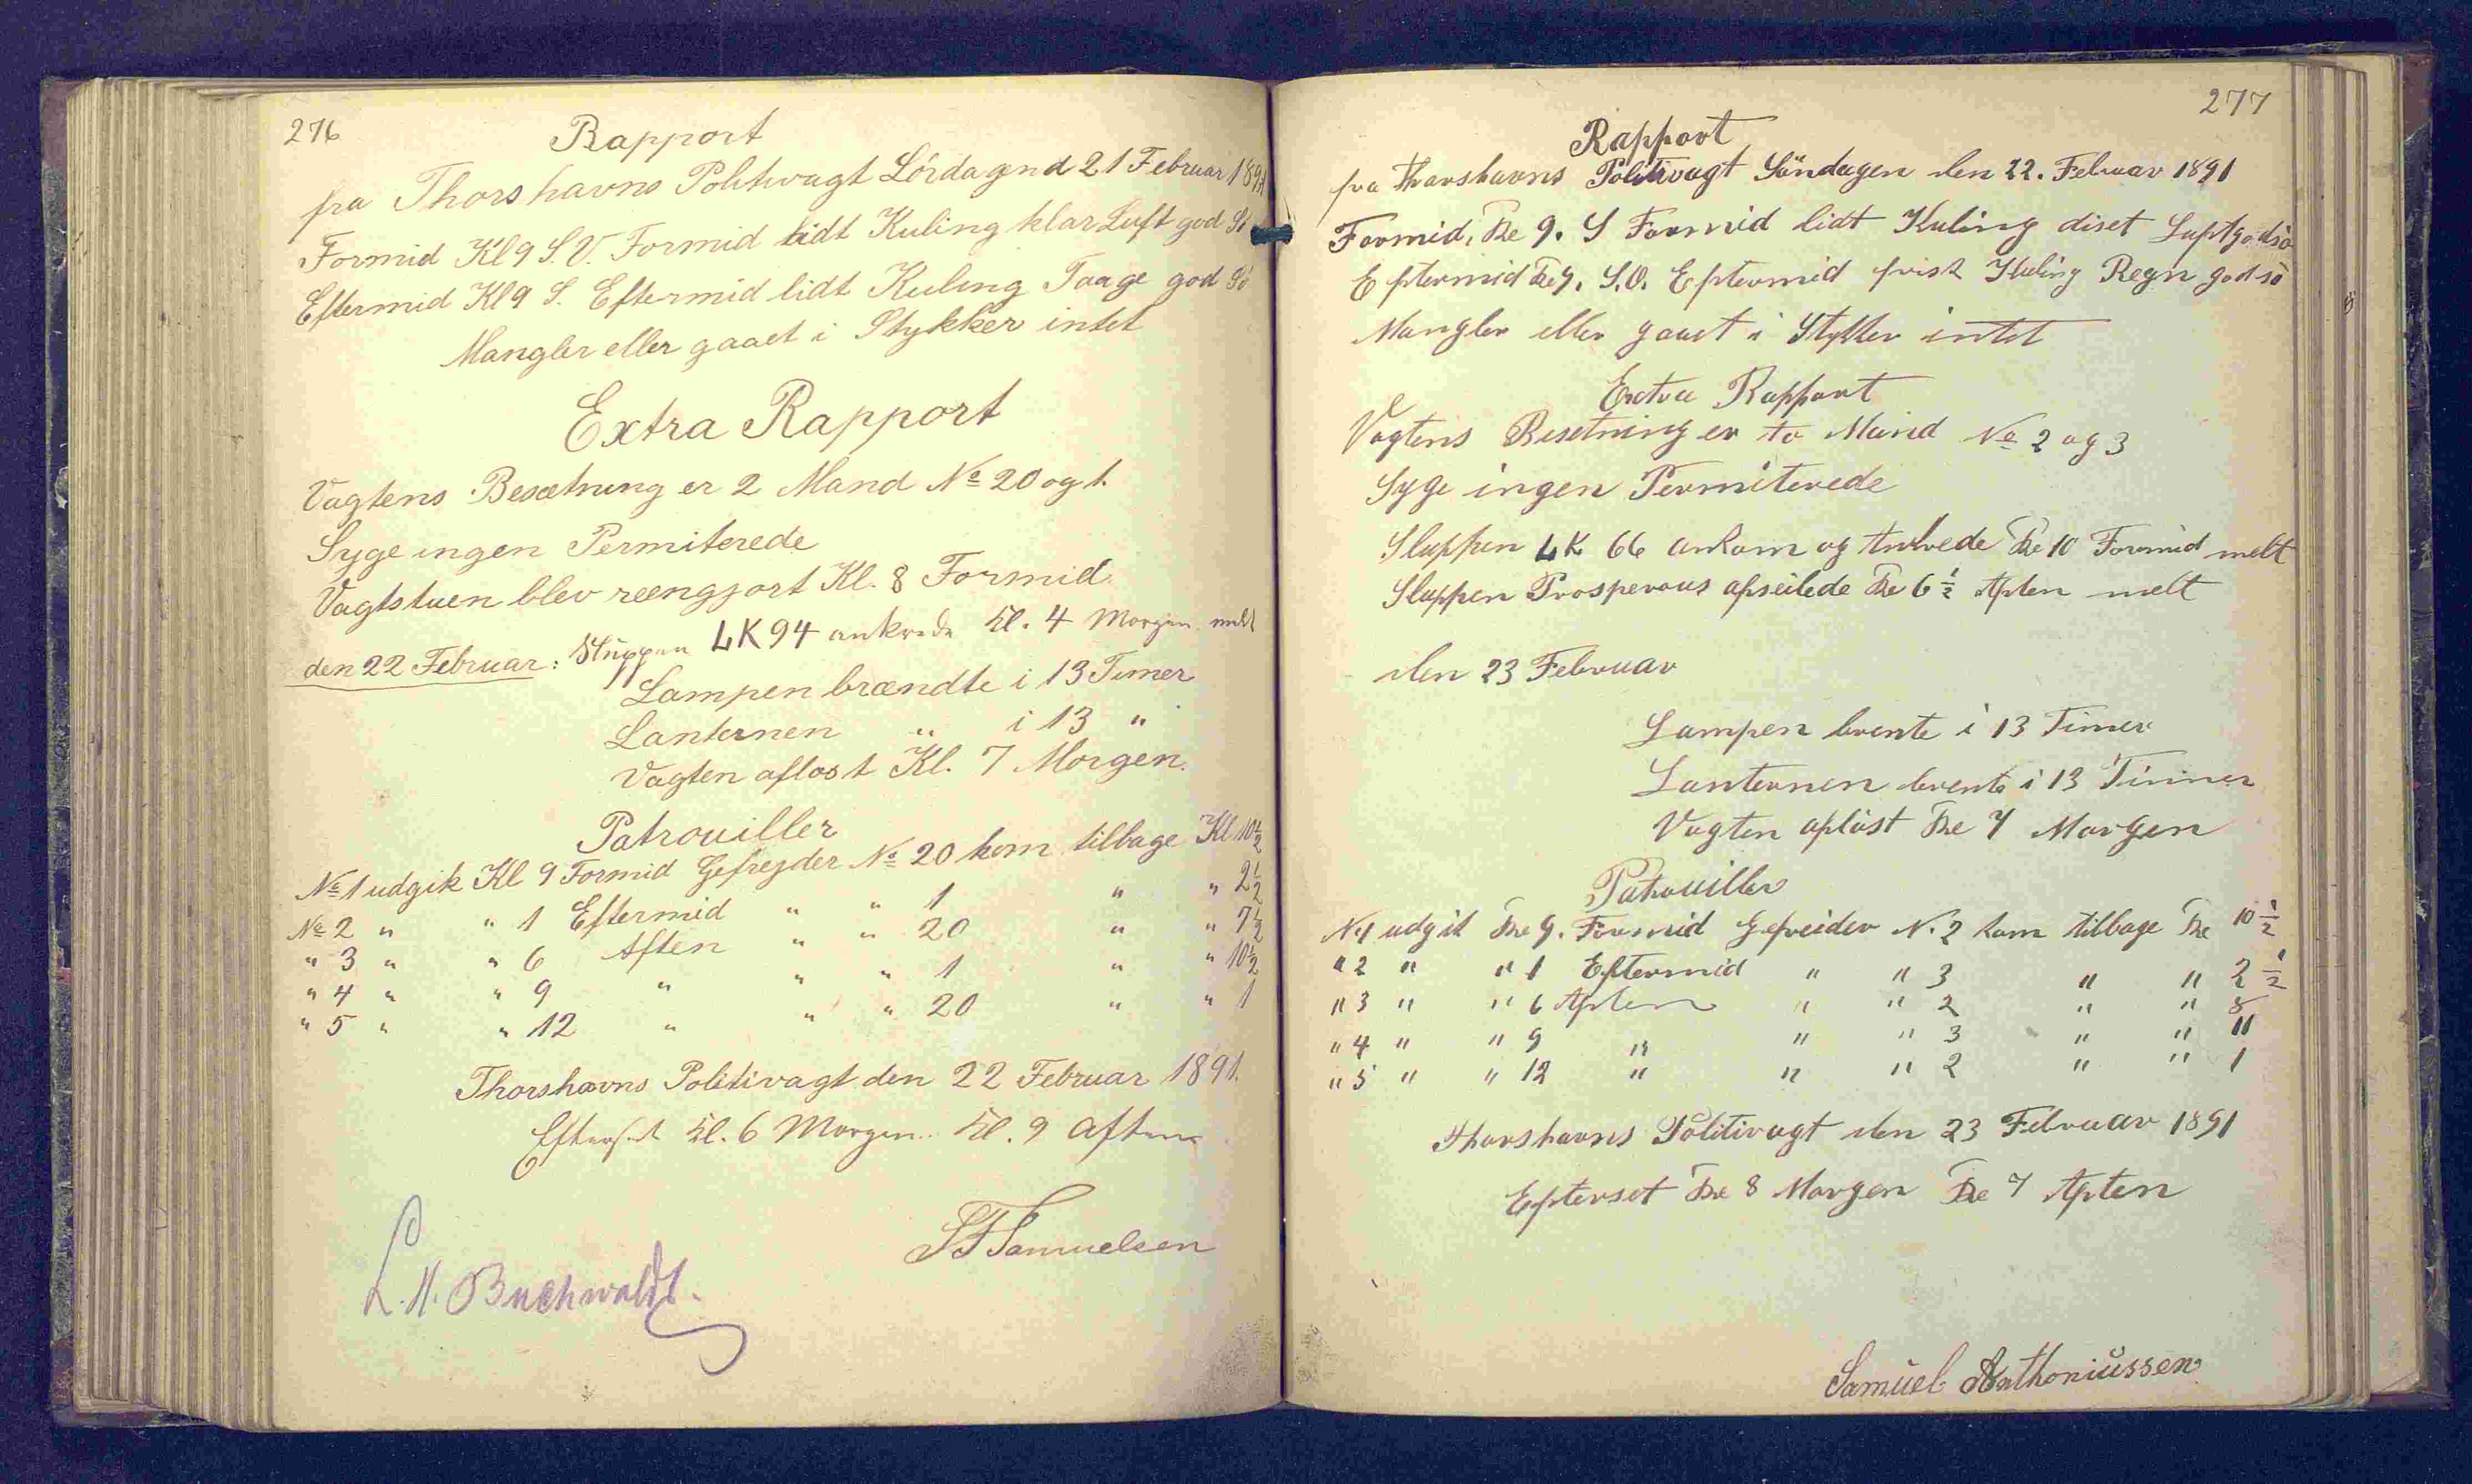 276
Rapport
fra Thorshavns Politivagt Lördagen d 21 Februar 1891
Formid Kl 9 S.V. Formid lidt Kuling klar Luft god Sö
Eftermid Kl 9 S. Eftermid lidt Kuling Taage god Sö
Mangler eller gaaet i Stykker intet
Extra Rapport
Vagtens Besætning er 2 Mand No 20 og 1.
Syge ingen Permiterede
Vagtstuen blev reengjort Kl. 8 Formid.
den 22 Februar: Sluppen LK 94 ankrede Kl. 4 Morgen meldt
Lampen brændte i 13 Timer
Lanternen " i 13 "
Vagten aflöst Kl. 7 Morgen.
Patrouiller
No 1 udgik Kl 9 Formid Gefrejder No 20 kom tilbage Kl 10½
No 2 " " 1 Eftermid " " 1 " " 2½
" 3 " " 6 Aften " " 20 " " 7½
" 4 " " 9 " " " 1 " " 10½
" 5 " " 12 " " " 20 " " 1
Thorshavns Politivagt den 22 Februar 1891.
Efterset Kl. 6 Morgen. Kl. 9 Aften
SFSamuelsen
L. M. Buchwaldt.
277
Rapport
fra Thorshavns Politivagt Söndagen den 22. Februar 1891
Formid, Kle 9. S Formid lidt Kuling diset Luft god sö
Eftermid Kle 9. S.O. Eftermid frisk Kuling Regn god sö
Mangler eller gaaet i Stykker intet
Extra Rapport
Vagtens Besetning er to Mand No 2 og 3
Syge ingen Permiterede
Sluppen LK 66 ankom og Ankrede Kle 10 Formid melt
Sluppen Prosperous afseilede Kle 6½ Aften melt
den 23 Februar
Lampen brente i 13 Timer
Lanternen brente i 13 Timer
Vagten aflöst Kle 7 Morgen
Patrouiller
N.1 udgik Kle 9. Formid Gefreider N. 2 kom tilbage Kle 10½
" 2 " " 1 Eftermid " " 3 " " 2½
" 3 " " 6 Aften " " 2 " " 8
" 4 " " 9 " " " 3 " " 11
" 5 " " 12 " " " 2 " " 1
Thorshavns Politivagt den 23 Februar 1891
Efterset Kle 8 Morgen Kle 7 Aften
Samuel Anthoniussen